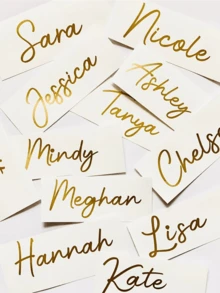 Sara
Nicole
Jessica
Ashley
Tanya
Mindy
Chels
Meghan
Lisa
Hannah
Kate